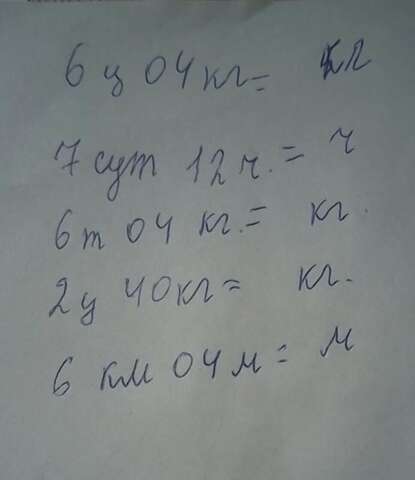 6 ц 04 кг = кг
7 сут 12 ч. = ч
6 т 04 кг. = кг.
2 ц 40 кг = кг.
6 км 04 м = м